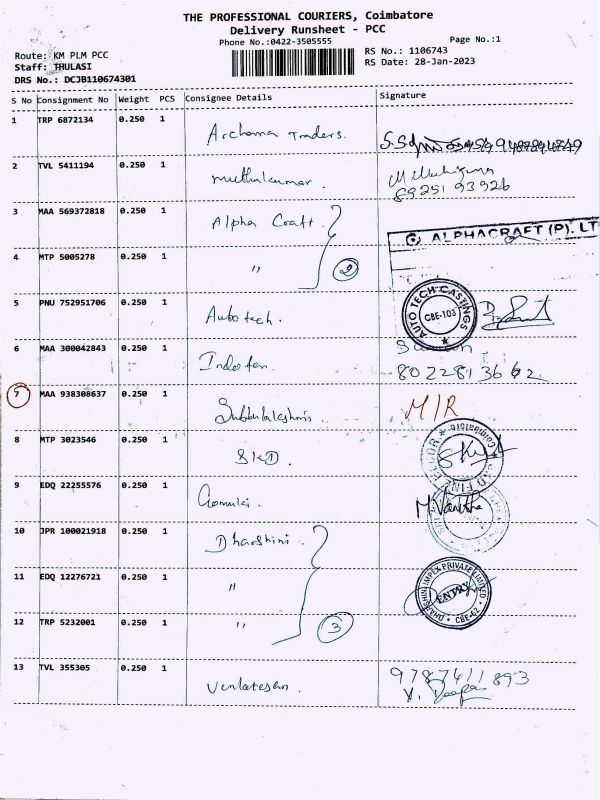 THE PROFESSIONAL COURIERS, Coimbatore
Delivery Runsheet - PCC
Phone No.:0422-3505555
Page No.:1
Route: KM PLM PCC
RS No.: 1106743
Staff: THULASI
RS Date: 28-Jan-2023
DRS No.: DCJB110674301
S No Consignment No Weight PCS Consignee Details Signature
1 TRP 6872134 0.250 1 Archana Traders.
2 TVL 5411194 0.250 1 muthukumar.
89251 93926
3 MAA 569372818 0.250 1 Alpha Craft.
ALPHACRAFT (P). LT
4 MTP 5005278 0.250 1 " 2
5 PNU 752951706 0.250 1 Autotech.
AUTO TECH CASTINGS CBE-103
6 MAA 300042843 0.250 1
7 MAA 938308637 0.250 1 Subbulakshmi M/R
8 MTP 3023546 0.250 1 SKD.
9 EDQ 22255576 0.250 1 Gomuki.
10 JPR 100021918 0.250 1 Dharshini.
11 EDQ 12276721 0.250 1 "
DHARSHINI IMPEX PRIVATE LIMITED ENTRY CBE-62
12 TRP 5232001 0.250 1 " 3
13 TVL 355305 0.250 1 Venkatesan.
9787411893